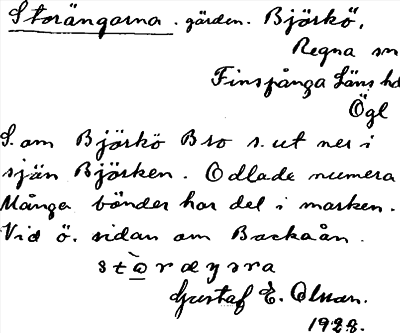 Storängarna . gärden. Björkö,
Regna sn
Finspånga Läns hd
Ögl
S. om Björkö Bro s. ut ner i
sjön Björken. Odlade numera
Många bönder har del i marken.
Vid ö. sidan om Backaån.
Gustaf E. Olsson.
1928.